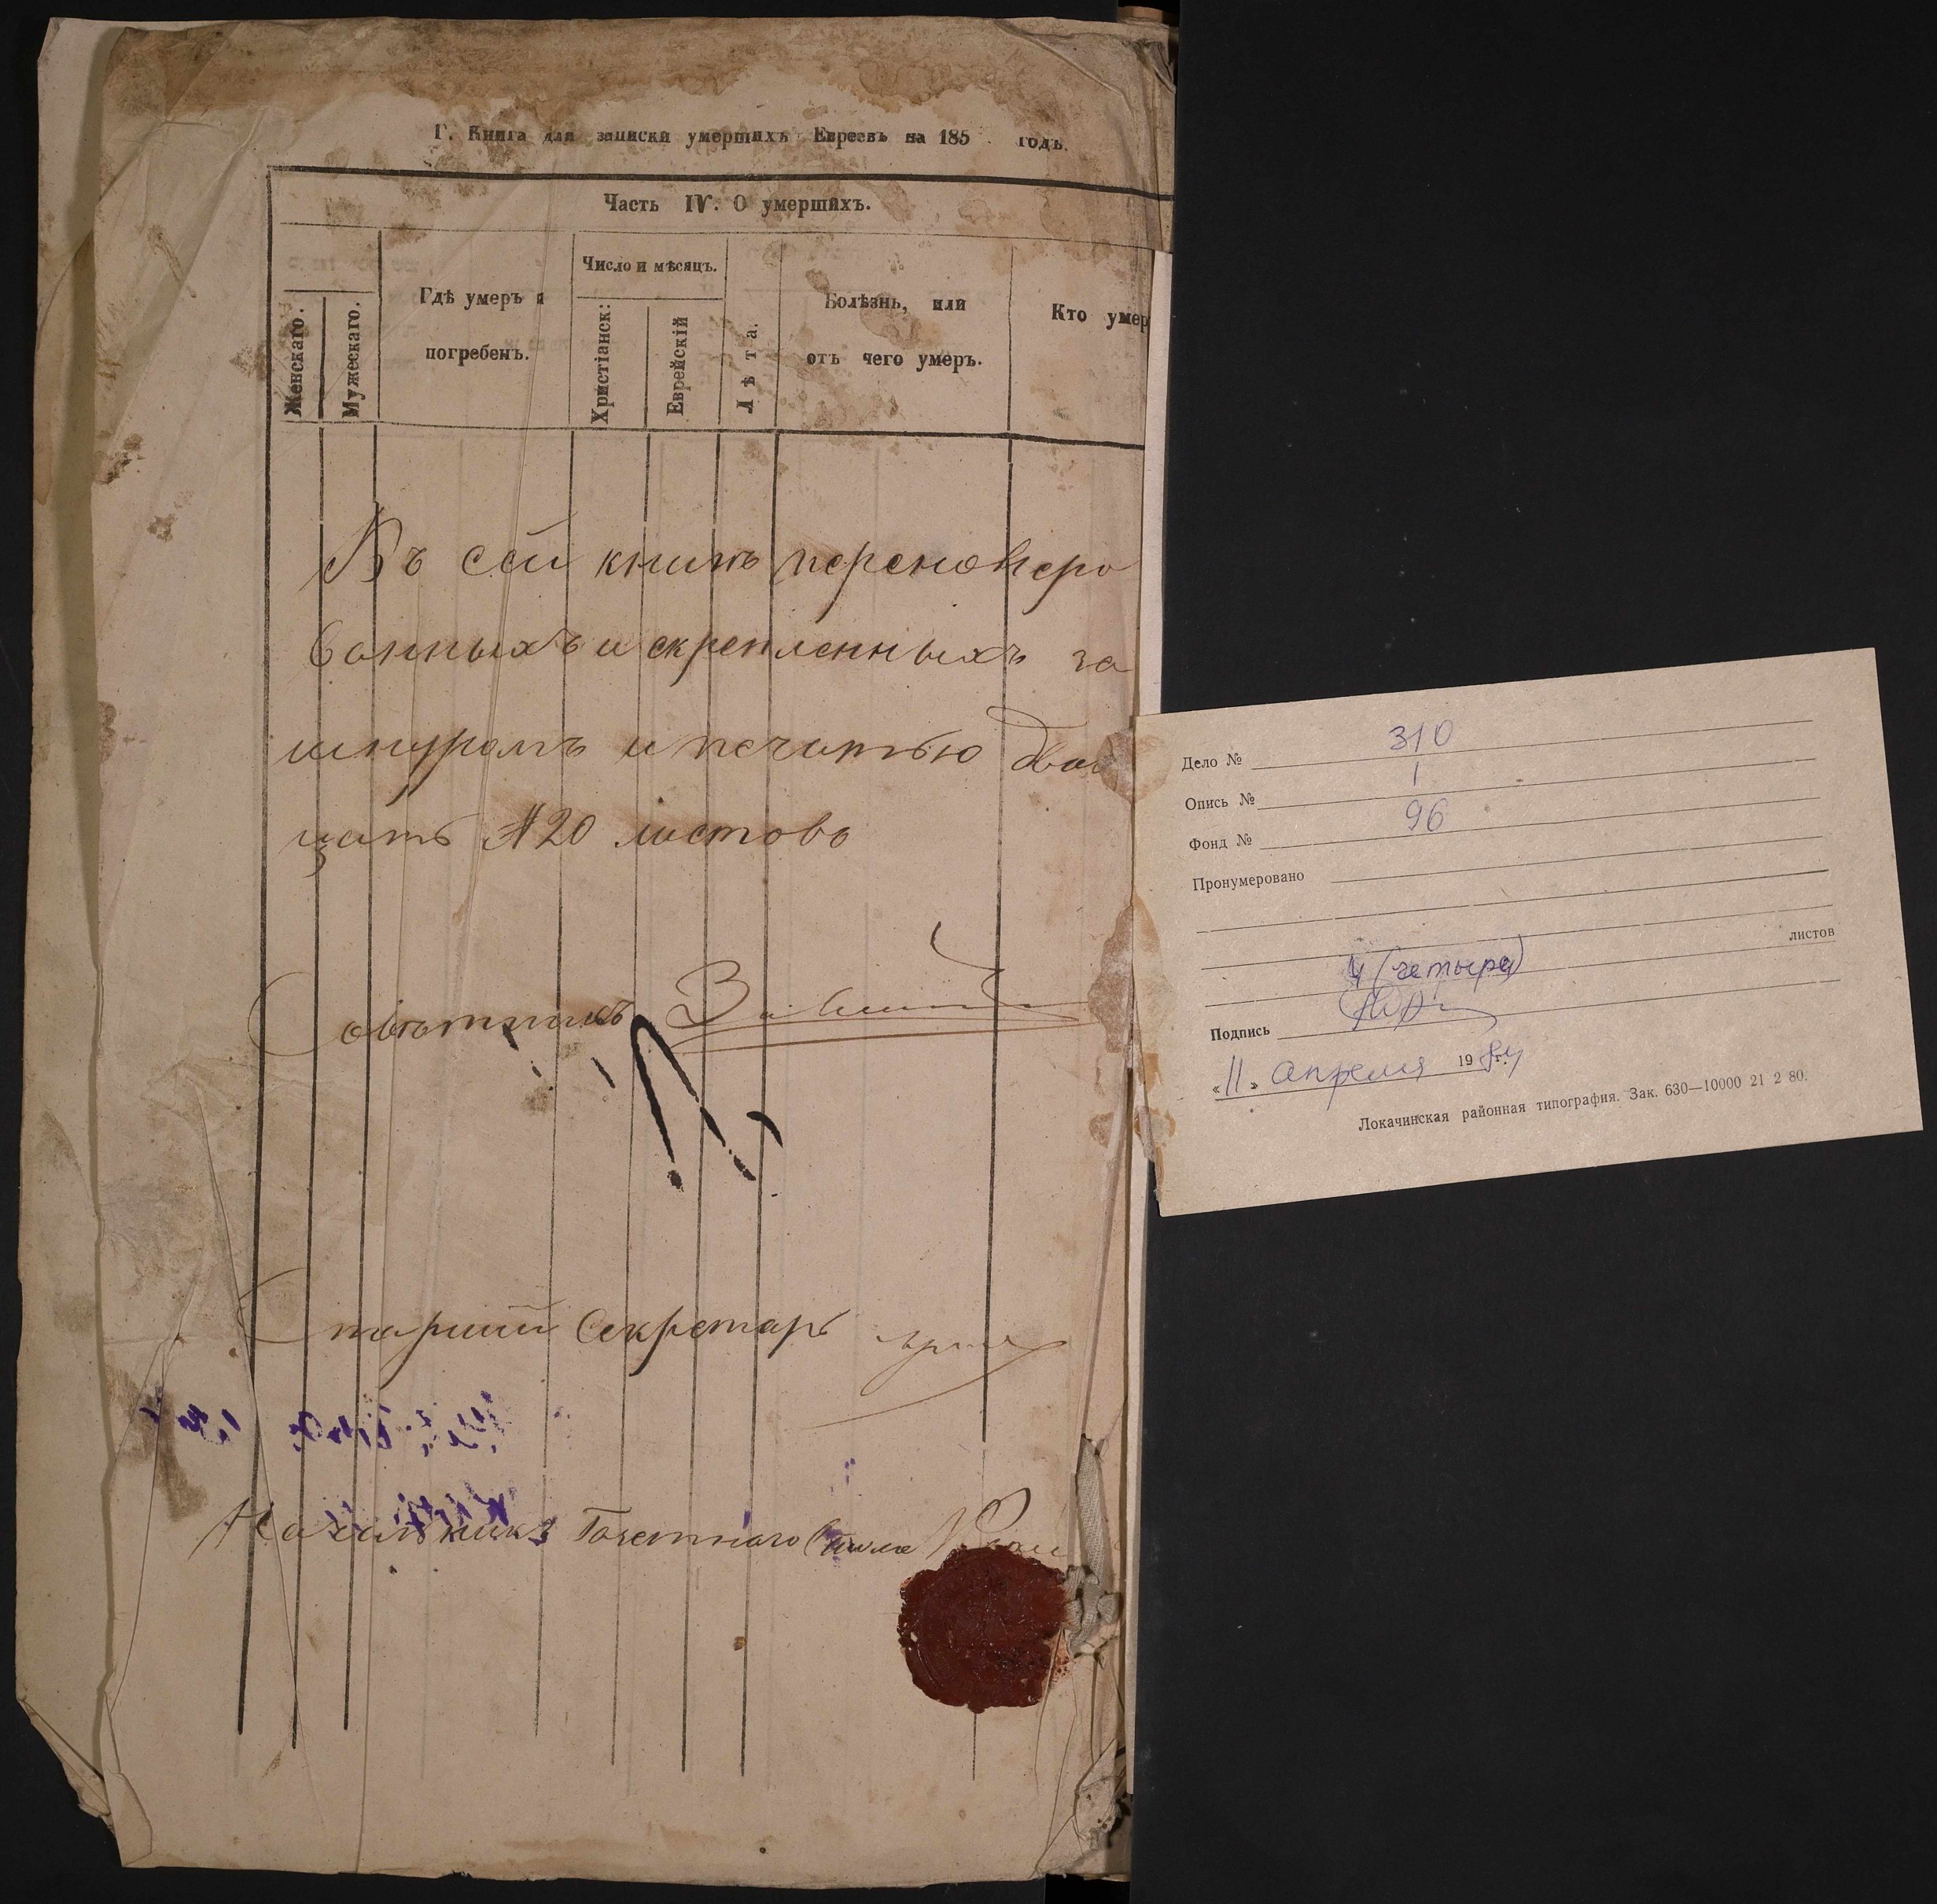 Г. Книга для записки умершихъ Евреевъ на 185 годъ.
Часть IV. О умершихъ.
Женскаго.
Мужескаго.
Гдѣ умеръ и
погребенъ.
Число и мѣсяцъ.
Христіанск:
Еврейскій
Лѣта.
Болѣзнь, или
отъ чего умеръ.
Кто умер
Въ сей книгѣ перенюмеро
ванныхъ и скрепленныхъ за
шнуромъ и печатью двад
цать №20 листовъ
Совѣтникъ
Старшій Секретарь
Начальникъ Газетнаго Стола
Дело № 310
Опись № 1
Фонд № 96
Пронумеровано
листов
4 (четыре)
Подпись
«11» апреля 1984 г.
Локачинская районная типография. Зак. 630—10000 21 2 80.